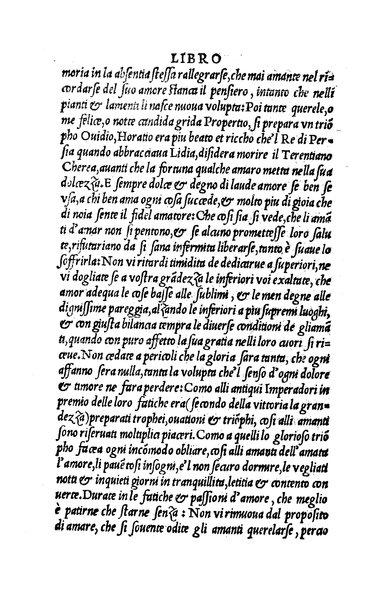 LIBRO
moria in la absentia stessa rallegrarse, che mai amante nel ricordarse
cordarse del suo amore stancà il pensiero, intanto che nelli
pianti & lamenti li nasce nuoua volupta: Poi tante querele, o
me felice, o notte candida grida Properto, si prepara vn triō
pho Ouidio, Horatio era piu beato et riccho che'l Re di Per-
sia quando abbracciaua Lidia, disidera morire il Terentiano
Cherea, auanti che la fortuna qualche amaro metta nella sua
dolcezza. E sempre dolce & degno di laude amore se ben se
vsa, a chi ben ama ogni cosa succede, & molto piu di gioia che
di noia sente il fidel amatore: Che cosi sia si vede, che li amā
ti d'amar non si pentono, & se alcuno promettesse loro salu
te, rifiutariano da si sana infermita liberarse, tanto è suaue lo
soffrirla: Non vi ritardi timidita de dedicarue a superiori, ne
vi dogliate se a vostra grādezza le inferiori voi exaltate, che
amor adequa le cose basse alle sublimi, & le men degne alle
dignissime pareggia, alzando le inferiori a piu supremi luoghi,
& con giusta bilanca tempra le diuerse conditioni de gliamā
ti, quando con puro affetto la sua gratia nelli loro cuori si ri=
ceue. Non cedate a pericoli che la gloria sara tanta, che ogni
affanno sera nulla, tanta la volupta che'l senso d'ogni dolore
& timore ne fara perdere: Come alli antiqui Imperadori in
premio delle loro fatiche era (secondo della vittoria la gran=
dezza) preparati trophei, ouationi & triōphi, cosi alli amanti
sono riseruati moltiplia piaceri. Como a quelli lo glorioso triō
pho facea ogni incōmodo obliare, cosi alli amanti dell'amata
l'amore, li pauēti insogni, e'l non securo dormire, le vegliati
notti & inquieti giorni in tranquillita, letitia & contento con
uerte. Durate in le fatiche & passioni d'amore, che meglio
è patirne che starne senza: Non vi rimuoua dal proposito
di amare, che si souente odite gli amanti querelarse, percio